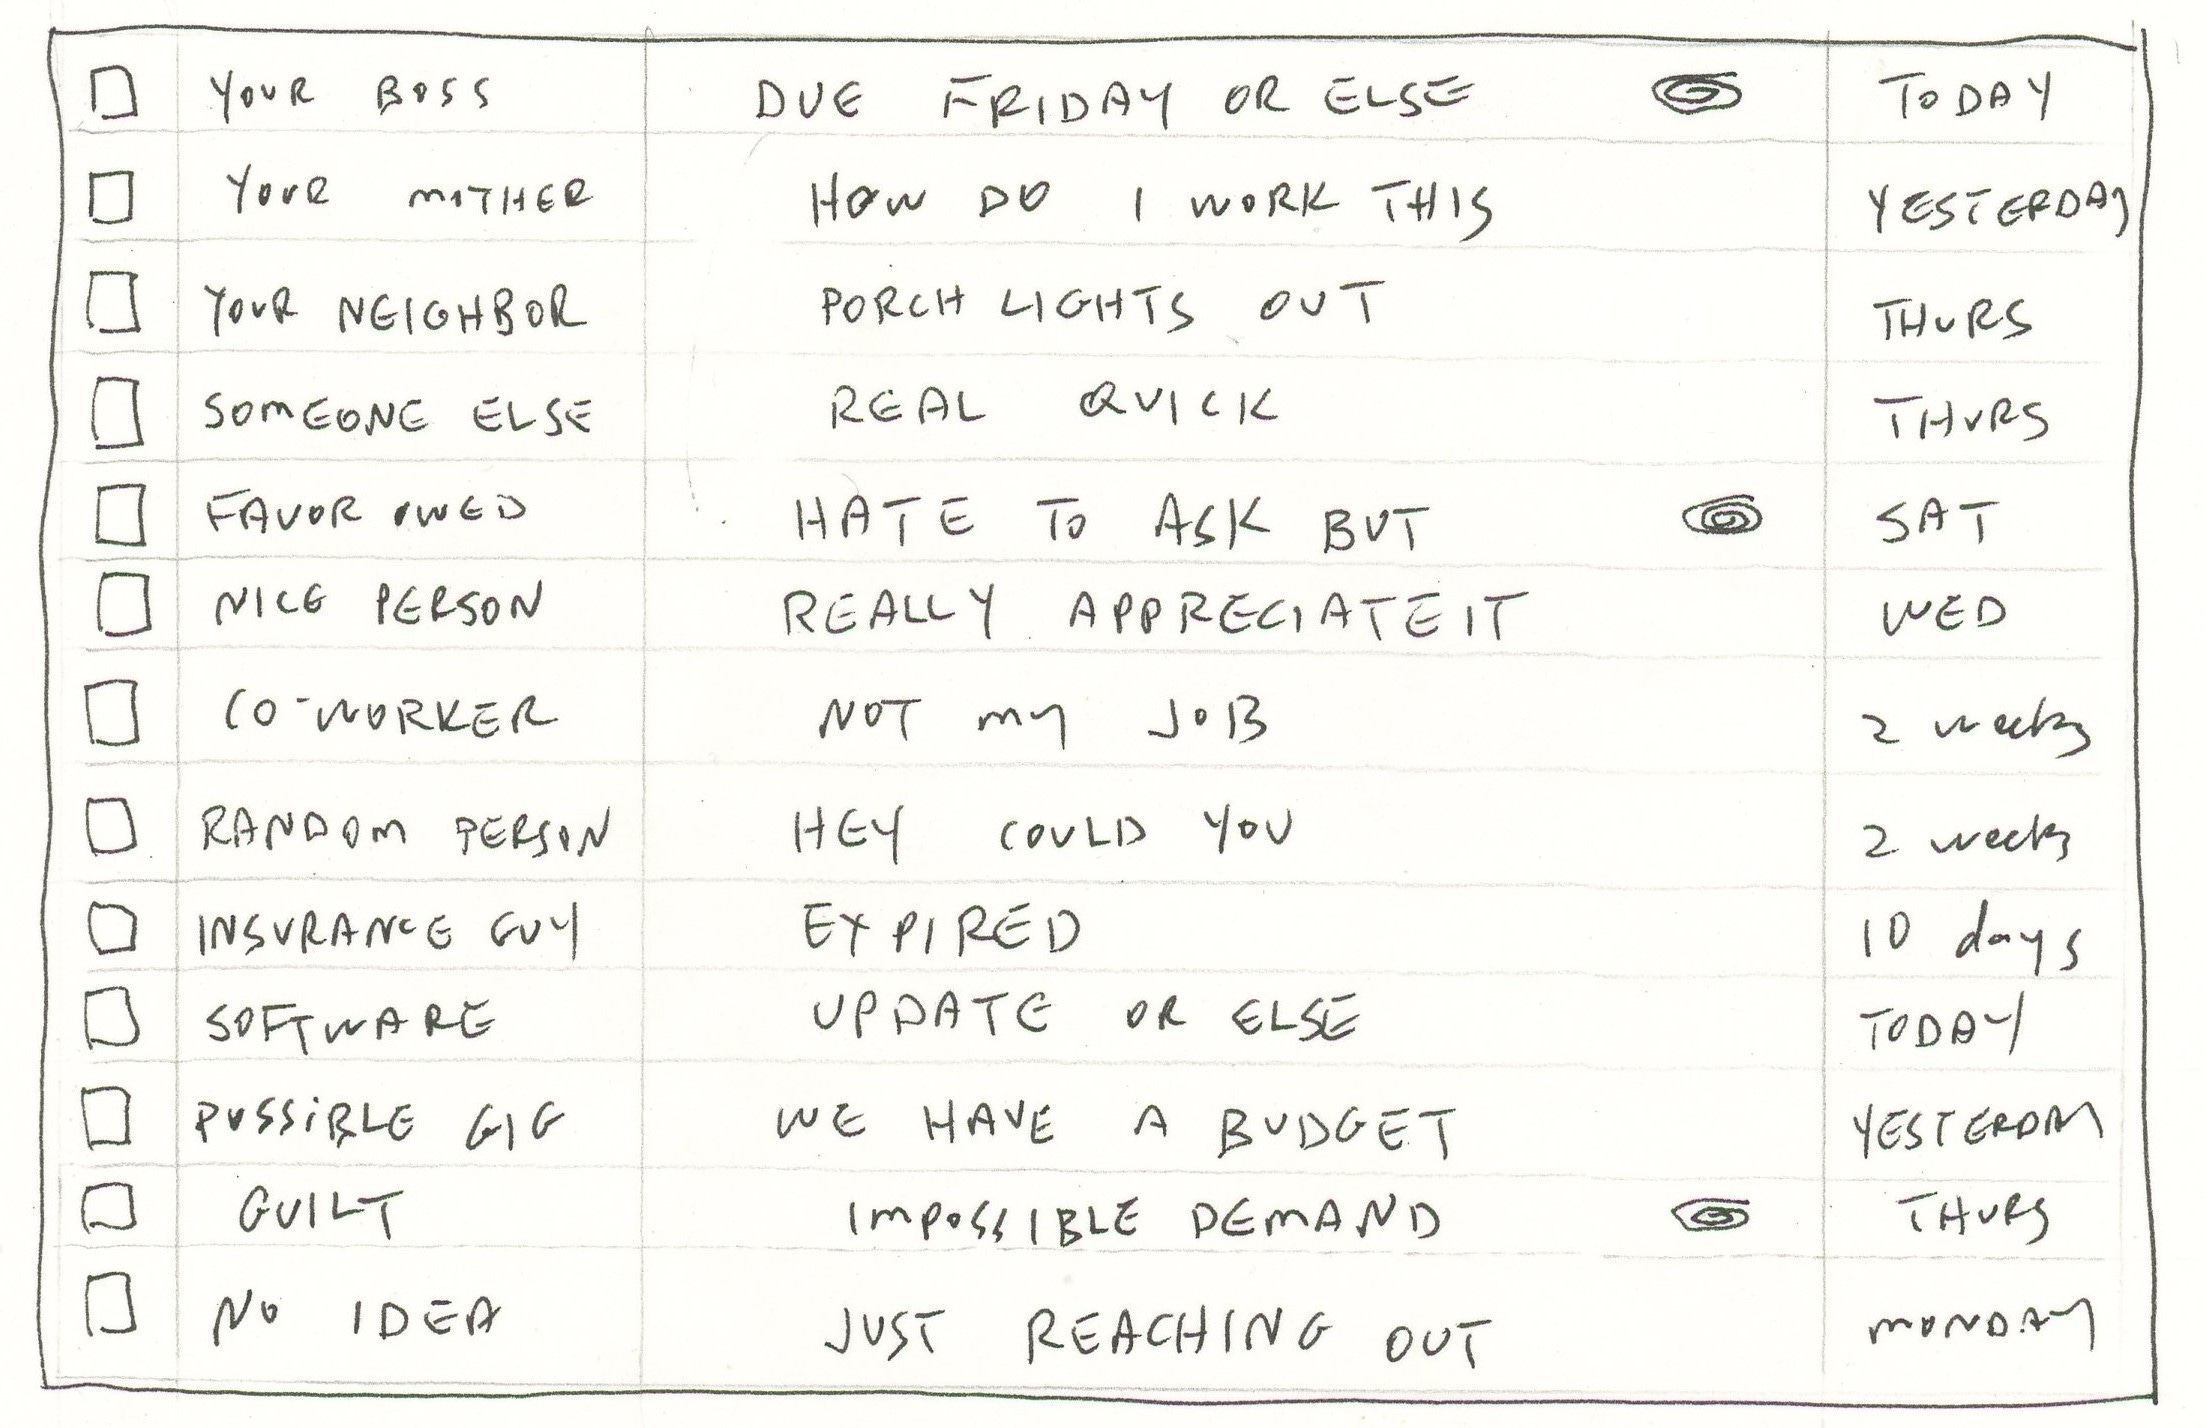 YOUR BOSS DUE FRIDAY OR ELSE TODAY
YOUR MOTHER HOW DO I WORK THIS YESTERDAY
YOUR NEIGHBOR PORCH LIGHTS OUT THURS
SOMEONE ELSE REAL QUICK THURS
FAVOR OWED HATE TO ASK BUT SAT
NICE PERSON REALLY APPRECIATE IT WED
CO-WORKER NOT my JOB 2 weeks
RANDOM PERSON HEY COULD YOU 2 weeks
INSURANCE GUY EXPIRED 10 days
SOFTWARE UPDATE OR ELSE TODAY
POSSiBLE GIG WE HAVE A BUDGET YESTERDAY
GUILT IMPOSSIBLE DEMAND THURS
NO IDEA JUST REACHING OUT MONDAY